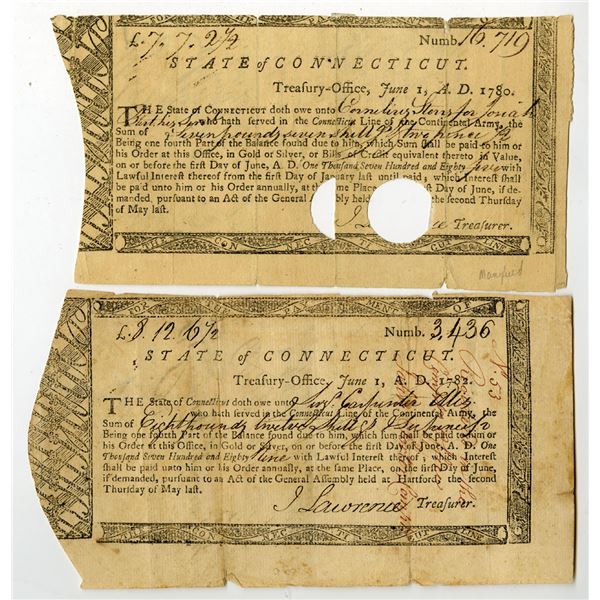 FOR THE PAYMENT OF
£.7.7.2½ Numb. 16,719
STATE of CONNECTICUT.
Treasury-Office, June 1, A. D. 1780.
THE State of CONNECTICUT doth owe unto Cornelius for Josiah
who hath served in the Connecticut Line of the Continental Army, the
Sum of Seven pounds seven Shill. two pence ½
Being one fourth Part of the Balance found due to him, which Sum shall be paid to him or
his Order at this Office, in Gold or Silver, or Bills of Credit equivalent thereto in Value,
on or before the first Day of June, A. D. One Thousand Seven Hundred and Eighty five with
Lawful Interest thereof from the first Day of January last until paid, which Interest shall
be paid unto him or his Order annually, at the same Place first Day of June, if de-
manded, pursuant to an Act of the General Assembly held the second Thursday
of May last.
J Lawrence Treasurer.
THE CON NEC TI CUT LINE
£.8.12.6½ Numb. 3,436
STATE of CONNECTICUT.
Treasury-Office, June 1, A. D. 1782.
THE State of Connecticut doth owe unto Carpenter
who hath served in the Connecticut Line of the Continental Army, the
Sum of Eight pounds twelve Shill. & Sixpence ½
Being one fourth Part of the Balance found due to him, which Sum shall be paid to him or
his Order at this Office, in Gold or Silver, on or before the first Day of June, A. D. One
Thousand Seven Hundred and Eighty nine with Lawful Interest thereof; which Interest
shall be paid unto him or his Order annually, at the same Place, on the first Day of June,
if demanded, pursuant to an Act of the General Assembly held at Hartford, the second
Thursday of May last.
J Lawrence Treasurer.
No 53